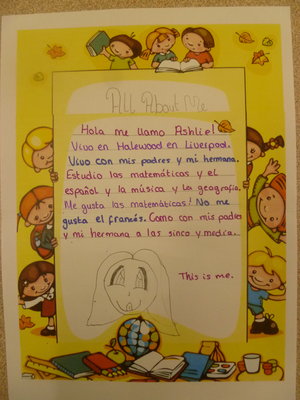 All About Me
Hola me llamo Ashlie!
Vivo en Halewood en Liverpool.
Vivo con mis padres y mi hermana.
Estudio las matemáticas y el
español y la música y la geografía.
Me gusta las matemáticas! No me
gusta el francés. Como con mis padres
y mi hermana a las sinco y media.
This is me.